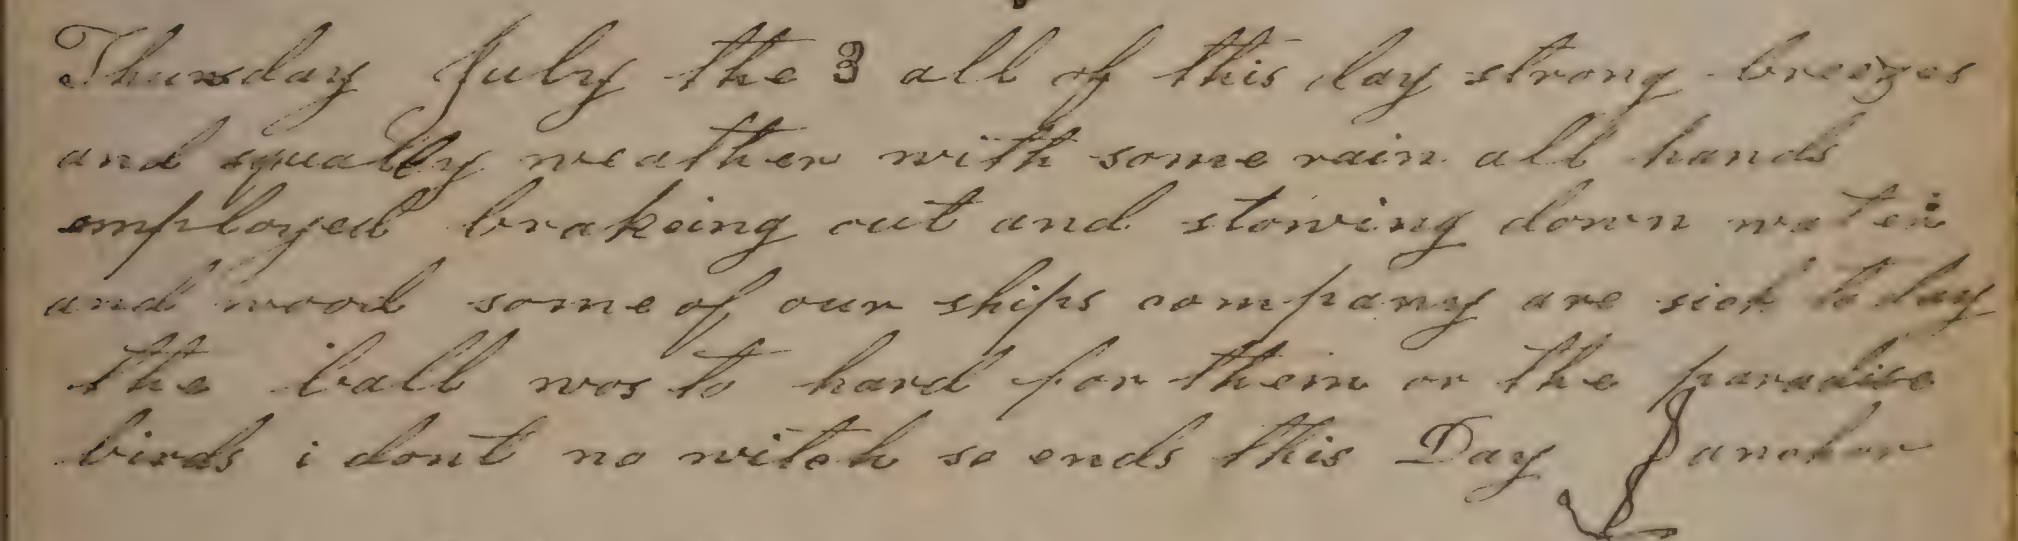 Thursday July the 3 all of this day strong breezes
and squally weather with some rain all hands
employed brakeing out and stowing down water
and wood some of our ships company are sick to day
the ball was to hard for them or the paradise
birds i dont no witch so ends this Day anchor